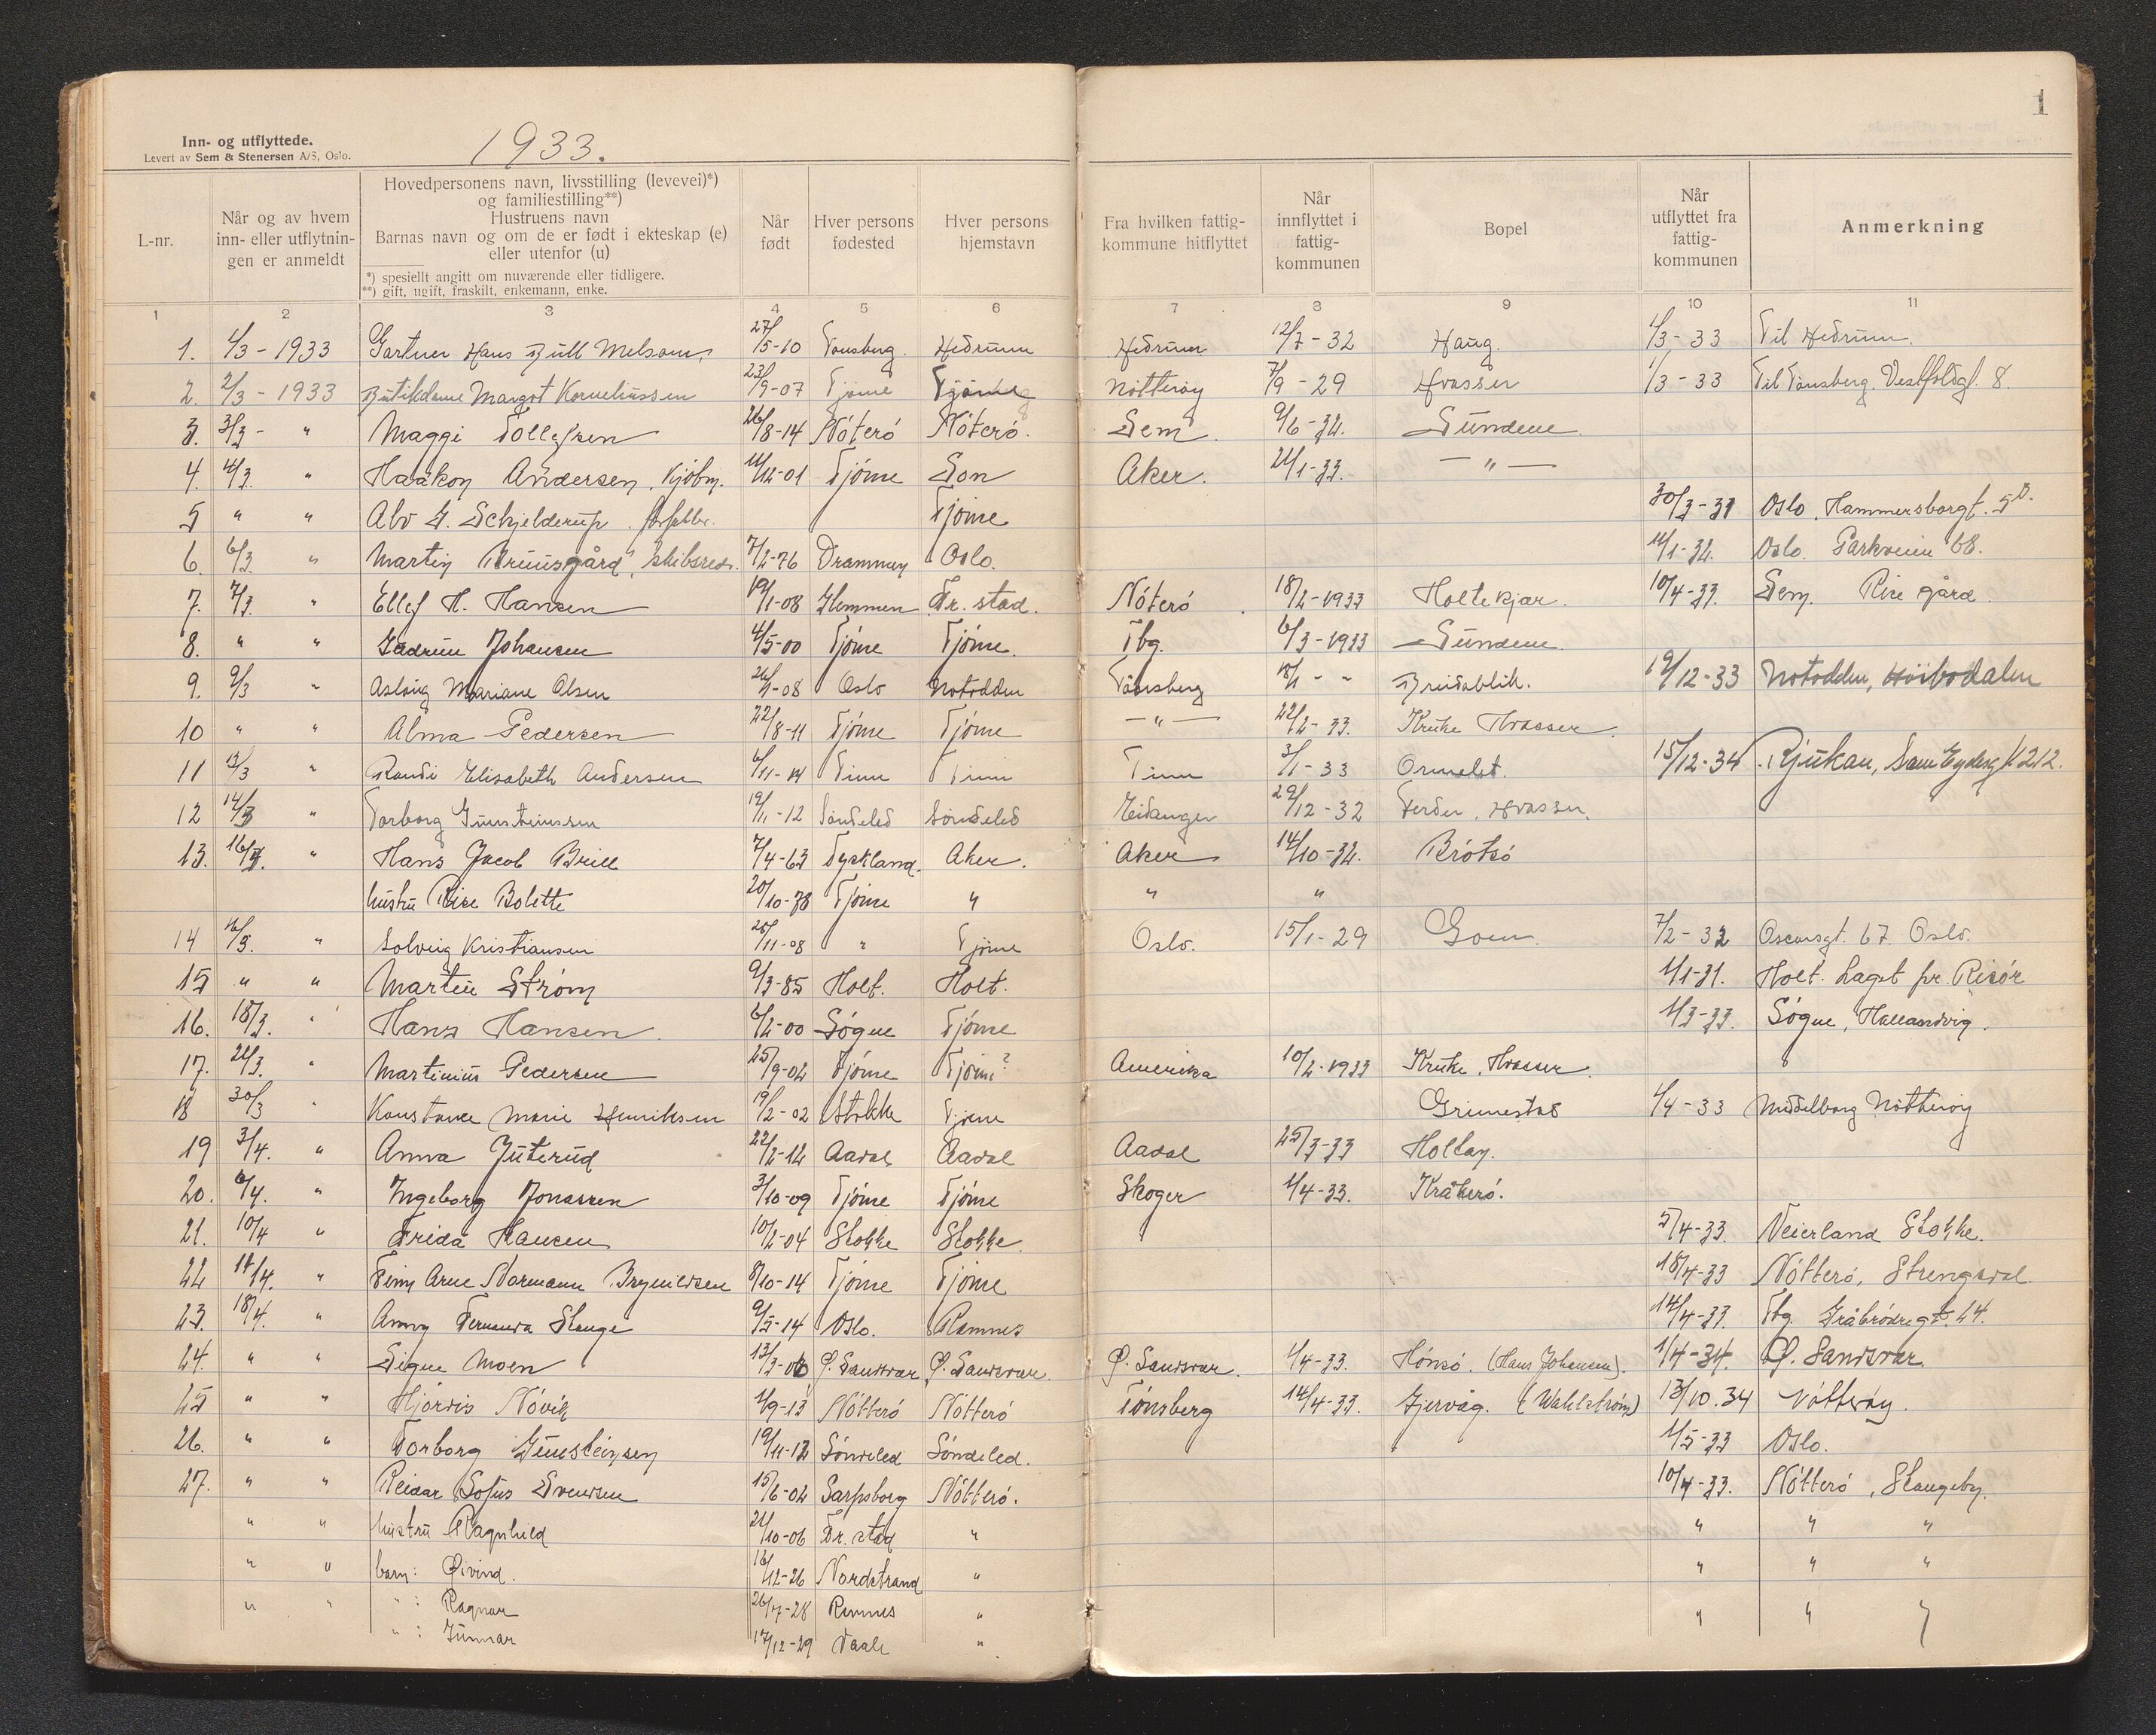 1
Inn- og utflyttede.
Levert av Sem & Stenersen A/S, Oslo.
1933.
L-nr.
Når og av hvem inn- eller utflytnin-gen er anmeldt
Hovedpersonens navn, livsstilling (levevei)*) og familiestilling**)
Hustruens navn
Barnas navn og om de er født i ekteskap (e) eller utenfor (u)
*) spesiellt angitt om nuværende eller tidligere.
**) gift, ugift, fraskilt, enkemann, enke.
Når født
Hver persons fødested
Hver persons hjemstavn
Fra hvilken fattig-kommune hitflyttet
Når innflyttet i fattig-kommunen
Bopel
Når utflyttet fra fattig-kommunen
Anmerkning
1 2 3 4 5 6 7 8 9 10 11
1. 1/3 - 1933 Gartner Hans Bull Melsom, 27/5-10 Tønsberg Hedrum Hedrum 12/7 - 32 Haug. 1/3 - 33 Til Hedrum.
2. 2/3 - 1933 Butikdame Margot Korneliussen 23/9-07 Tjøme Tjøme Nøtterøy 7/9 - 29 Hvasser 1/3 - 33 Til Tønsberg. Vestfoldgt. 8.
3. 3/3 - " Maggi Tollefsen 26/8-14 Nóteró Nóteró. Sem. 9/6-32. Sundene
4. 4/3. " Haakon Andersen, kjøbm. 11/12-01 Tjóme Son Aker. 21/1-33. - " -
5 " " Alv G. Schjelderup. forfatter. Tjóme 30/3-31 Oslo, Hammersborgt. 5B.
6. 6/3. " Martin Bruusgård, skibsred. 7/2-76 Drammen Oslo. 11/1-32. Oslo. Parkveien 68.
7. 7/3. " Ellef H. Hansen 19/1-08 Glemmen Fr. stad. Nóteró 18/2-1933 Holtekjær. 10/4-33. Sem. Rise gård
8. " " Gudrun Johansen 4/5-00 Tjóme Tjóme. Tbg. 6/3-1933 Sundene.
9. 9/3 " Aslaug Mariane Olsen 26/1-08 Oslo Notodden Tønsberg 18/1 - " Breidablik. 19/12-33 Notodden, Høibødalen
10 " " Alma Pedersen 22/8-11 Tjóme Tjóme - " - 22/2-33. Kruke Hvasser.
11 13/3 " Randi Elisabeth Andersen 6/11-14 Tinn Tinn Tinn 3/1-33 Ormelet. 15/12-34 Rjukan, Sam Eydesgt. 212.
12 14/3 " Torborg Gunsteinssen 19/11-12 Søndeled Søndeled Eidanger 29/12-32 Færder, Hvasser.
13. 16/3. " Hans Jacob Brill 7/4-63 Tyskland. Aker. Aker 14/10-32. Brótsó
hustru Rise Bolette 20/10-78 Tjóme " " "
14 16/3. " Solveig Kristiansen 25/11-08 " Tjóme Oslo. 15/1-29 Goen. 7/2-32 Oscarsgt. 67. Oslo.
15 " " Martin Strøm 9/3-85 Holt. Holt. 1/1-31. Holt. Laget pr. Risór
16. 18/3. " Hans Hansen. 6/2-00 Sógne Tjóme 1/3-33. Sógne, Hallandvig.
17. 21/3. " Martinius Pedersen 25/9-02 Tjóme Tjóme? Amerika 10/2-1933 Kruke, Hvasser.
18 30/3 " Konstance Marie Henriksen 19/2-02 Stokke Tjøme Grimestad 1/4-33 Middelborg Nøtterøy
19 3/4. " Anna Juterud 22/2-12 Aadal Aadal Aadal 25/3-33 Holtan.
20. 6/4. " Ingeborg Jonassen 3/10-09 Tjóme Tjóme Skoger 1/4-33. Kråkeró.
21. 10/4 " Frida Hansen 10/2-04 Stokke Stokke. 5/4-33. Veierland Stokke.
22 11/4. " Finn Arne Normann Brynildsen 8/10-14 Tjóme Tjóme 18/4-33 Nótteró, Strengsdal
23. 18/4. " Anny Fernanda Stange 9/5-14 Oslo. Ramnes 14/4-33. Tbg. Gråbródregt. 24.
24. " " Signe Moen 13/3-06 Ø. Sandsvær Ø. Sandsvær. Ø. Sandsvær. 1/4-33. Hónsó. (Hans Johansen). 1/4-34. Ø. Sandsvær.
25 " " Hjördis Nóvik 1/9-13 Nótteró Nótteró Tónsberg 14/4-33. Gjervåg. (Wahlstróm) 13/10.34 Nøtterøy.
26. " " Torborg Gunsteinsen 19/11-12 Sóndeled Sóndeled. 1/5-33 Oslo.
27. " " Reidar Sofus Svendsen 15/6-02 Sarpsborg Nótteró. 10/4-33. Nótteró, Skangeby.
" " hustru Ragnhild 21/10-06 Fr. stad " " " "
" " barn: Øivind. 16/12-26 Nordstrand " " " "
" " " : Ragnar 26/7-28 Ramnes " " " "
" : Gunnar 17/12-29 Vaale "